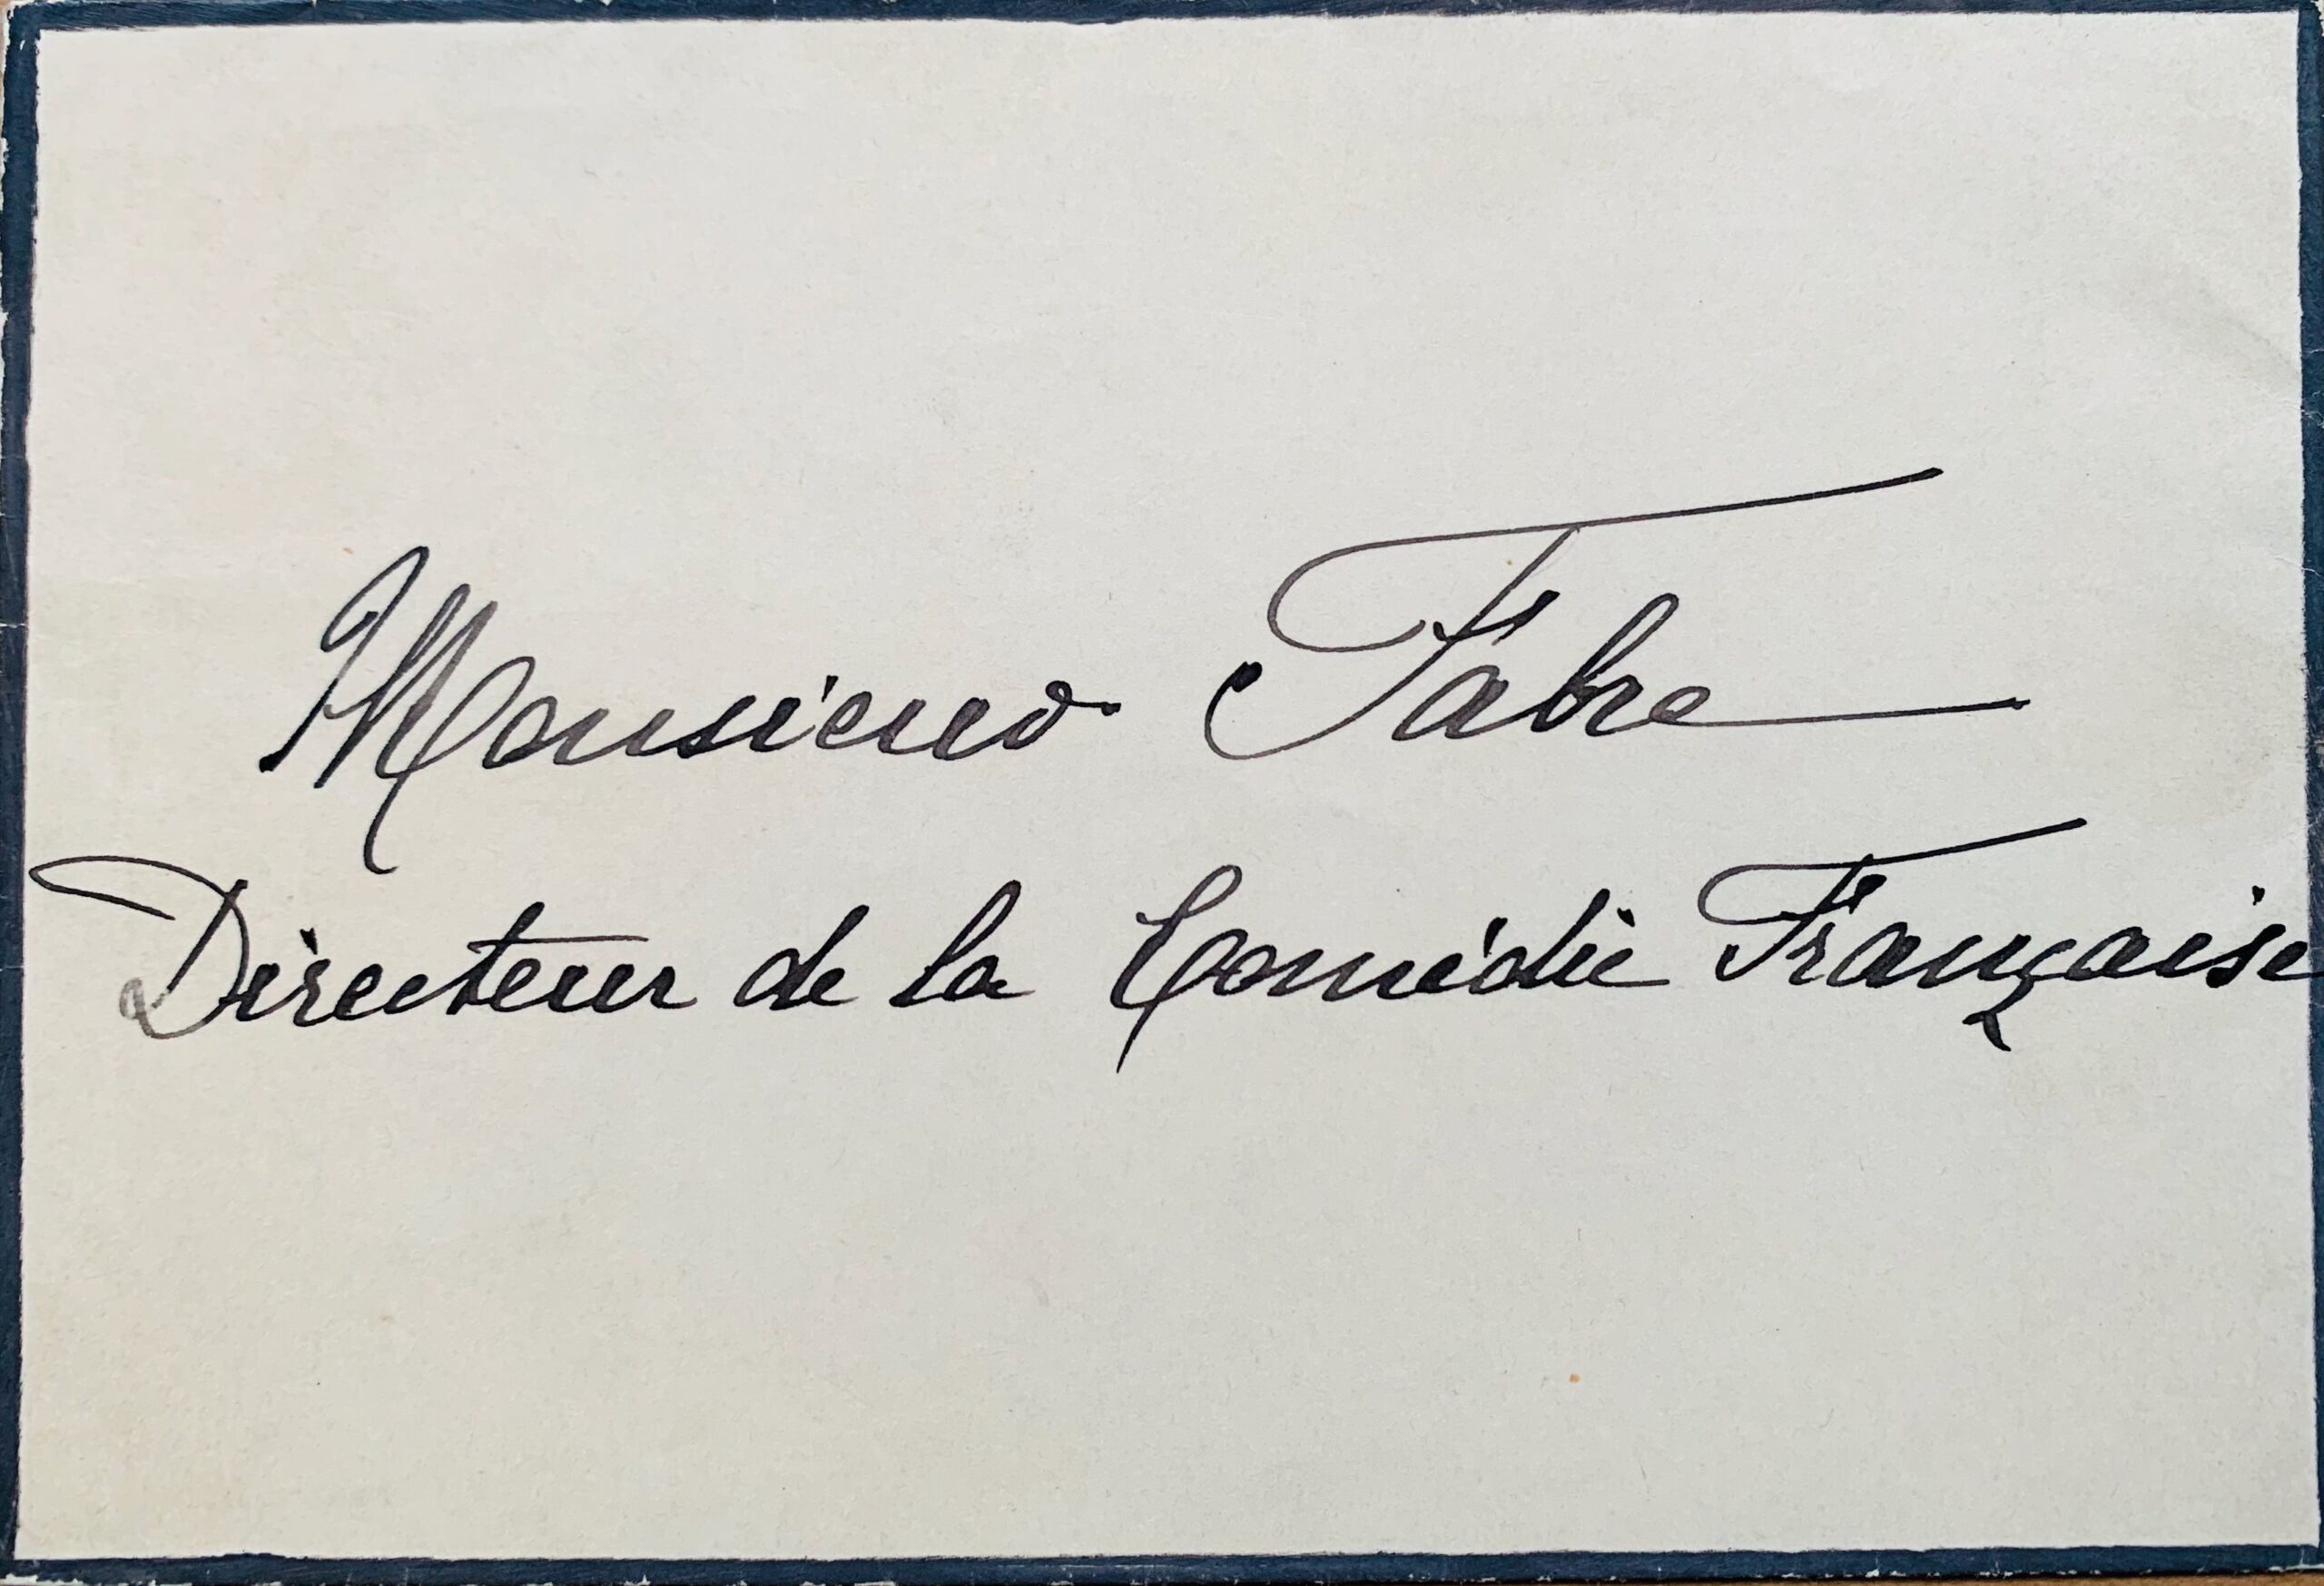 Monsieur Fabre
Directeur de la Comédie Française